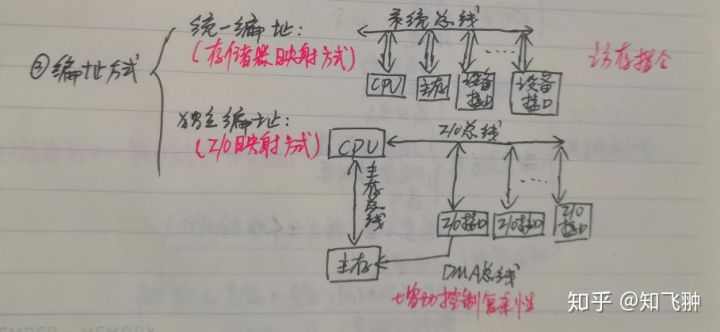 ②编址方式
统一编址：
(存储器映射方式)
系统总线
CPU
主存
设备接口
设备接口
访存指令
独立编址：
(I/O映射方式)
CPU
I/O总线
主存总线
I/O接口
I/O接口
I/O接口
主存
DMA总线
增加控制复杂性
知乎 @知飞翀